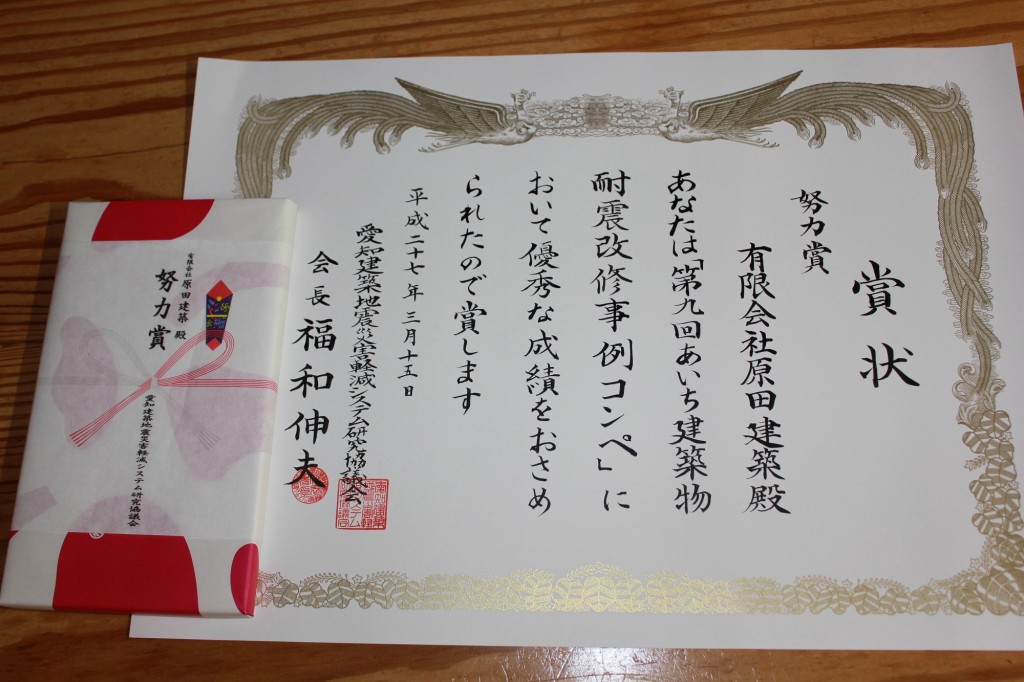 賞状
努力賞
有限会社原田建築殿
あなたは「第九回あいち建築物
耐震改修事例コンペ」に
おいて優秀な成績をおさめ
られたので賞します
平成二十七年三月十五日
愛知建築地震災害軽減システム研究協議会
会長 福和伸夫
有限会社 原田建築 殿
努力賞
愛知建築地震災害軽減システム研究協議会